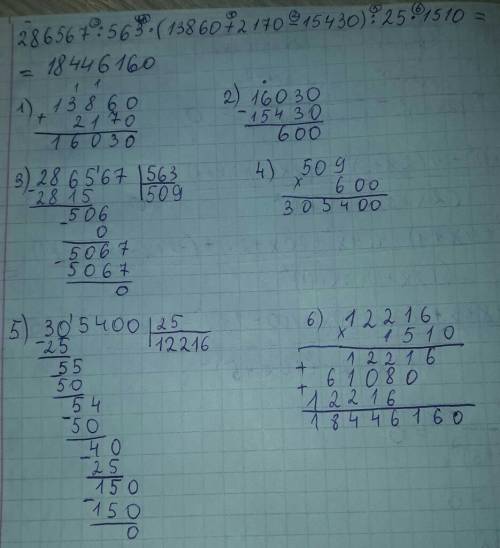 286567:563·(13860+2170-15430):25·1510=
=18446160
1) 13860
+ 2170
16030
2) 16030
- 15430
600
3) 286567 | 563
- 2815 | 509
- 506
0
- 5067
5067
0
4) 509
× 600
305400
5) 305400 | 25
- 25 | 12216
55
50
- 54
50
- 40
25
150
- 150
0
6) 12216
× 1510
12216
+ 61080
+ 12216
18446160